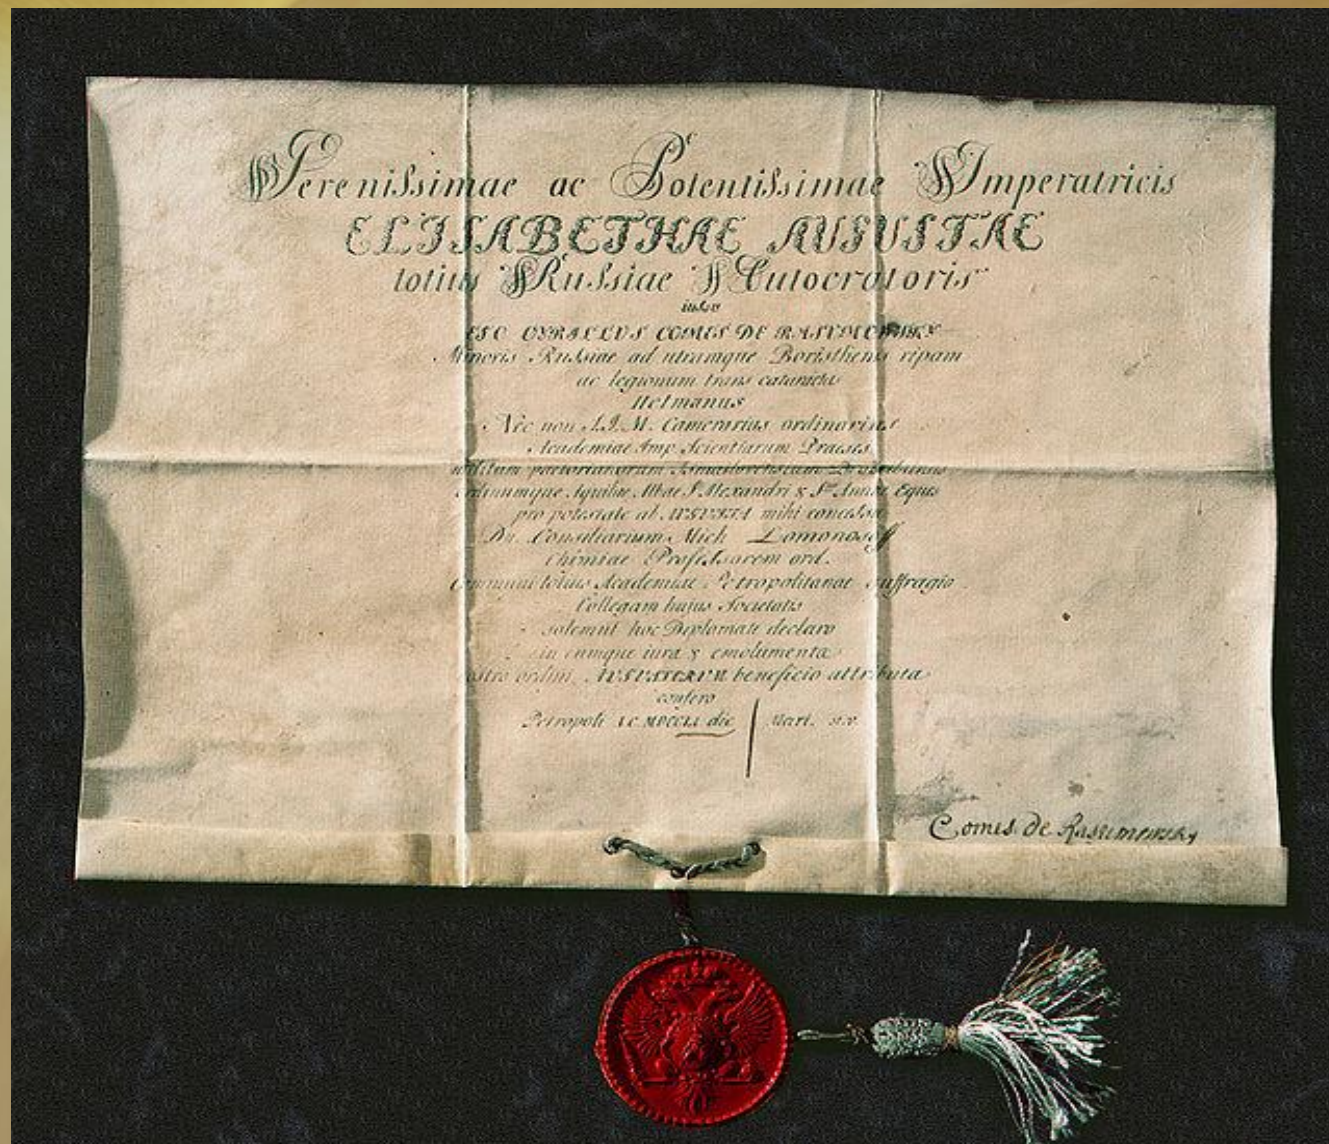 Serenissimae ac Potentissimae Imperatricis
ELISABETHAE AUGUSTAE
totius Russiae Autocratoris
iussu
EGO CYRILLUS COMES DE RASUMOWSKY
Minoris Russiae ad utramque Boristhenis ripam
ac legionum trans cataractas
Hetmanus
Nec non S.I.M. Camerarius ordinarius
Academiae Imp. Scientiarum Praeses
Ordinumque Aquilae Albae S. Alexandri & Stae Annae Eques
pro potestate ab AUGUSTA mihi concessa
Dn. Consiliarium Mich Lomonosoff
Chimiae Professorem ord.
communi totius Academiae Petropolitanae suffragio
Collegam huius Societatis
solemni hoc Diplomate declaro
in eumque iura & emolumenta
nostro ordini AUGUSTARUM beneficio attributa
confero
Petropoli MDCCLI die Mart. st. v.
Comes de Rasumowsky